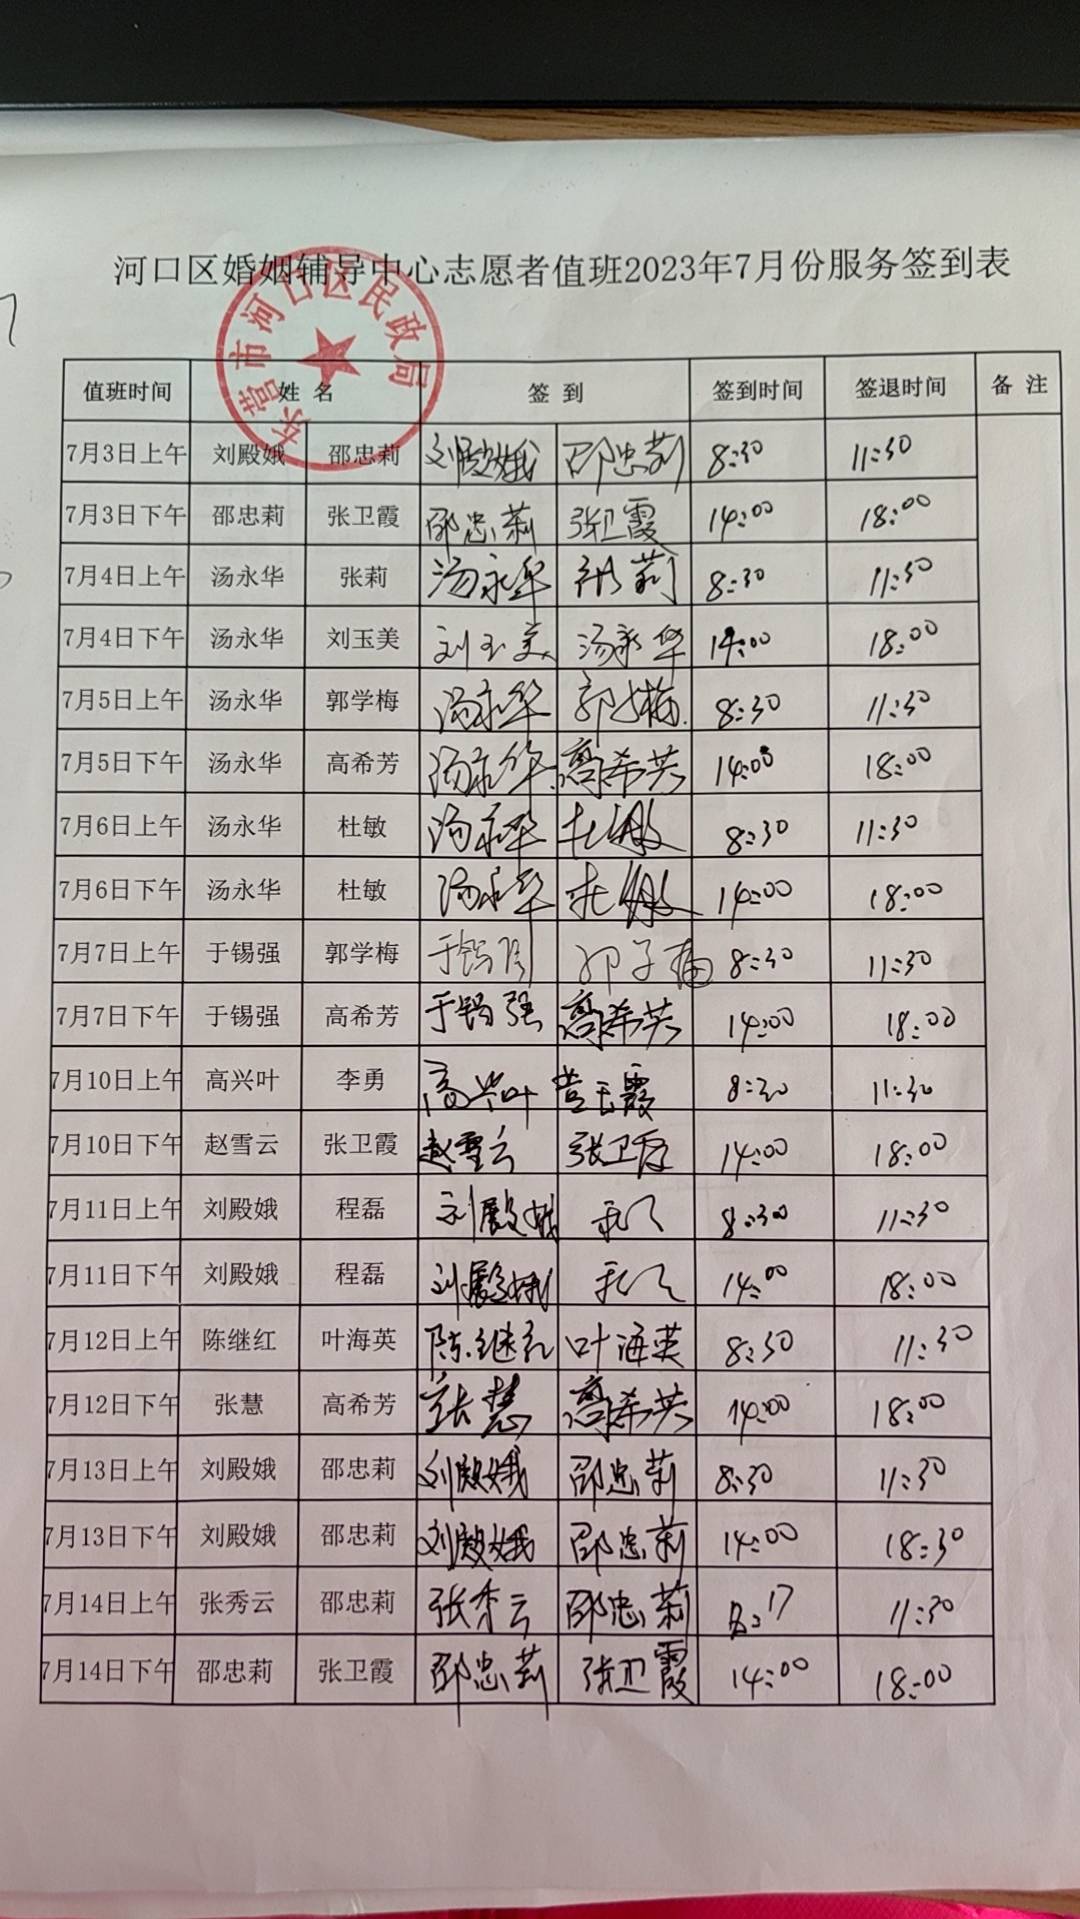 河口区婚姻辅导中心志愿者值班2023年7月份服务签到表
东营市河口区民政局
值班时间 姓 名 签 到 签到时间 签退时间 备 注
7月3日上午 刘殿娥 邵忠莉 刘殿娥 邵忠莉 8:30 11:30
7月3日下午 邵忠莉 张卫霞 邵忠莉 张卫霞 14:00 18:00
7月4日上午 汤永华 张莉 汤永华 张莉 8:30 11:30
7月4日下午 汤永华 刘玉美 刘玉美 汤永华 14:00 18:00
7月5日上午 汤永华 郭学梅 汤永华 郭学梅 8:30 11:30
7月5日下午 汤永华 高希芳 汤永华 高希芳 14:00 18:00
7月6日上午 汤永华 杜敏 汤永华 杜敏 8:30 11:30
7月6日下午 汤永华 杜敏 汤永华 杜敏 14:00 18:00
7月7日上午 于锡强 郭学梅 于锡强 8:30 11:30
7月7日下午 于锡强 高希芳 于锡强 高希芳 14:00 18:00
7月10日上午 高兴叶 李勇 高兴叶 8:30 11:30
7月10日下午 赵雪云 张卫霞 赵雪云 张卫霞 14:00 18:00
7月11日上午 刘殿娥 程磊 刘殿娥 8:30 11:30
7月11日下午 刘殿娥 程磊 刘殿娥 14:00 18:00
7月12日上午 陈继红 叶海英 陈继红 叶海英 8:30 11:30
7月12日下午 张慧 高希芳 张慧 高希芳 14:00 18:00
7月13日上午 刘殿娥 邵忠莉 刘殿娥 邵忠莉 8:30 11:30
7月13日下午 刘殿娥 邵忠莉 刘殿娥 邵忠莉 14:00 18:30
7月14日上午 张秀云 邵忠莉 张秀云 邵忠莉 8:17 11:30
7月14日下午 邵忠莉 张卫霞 邵忠莉 张卫霞 14:00 18:00